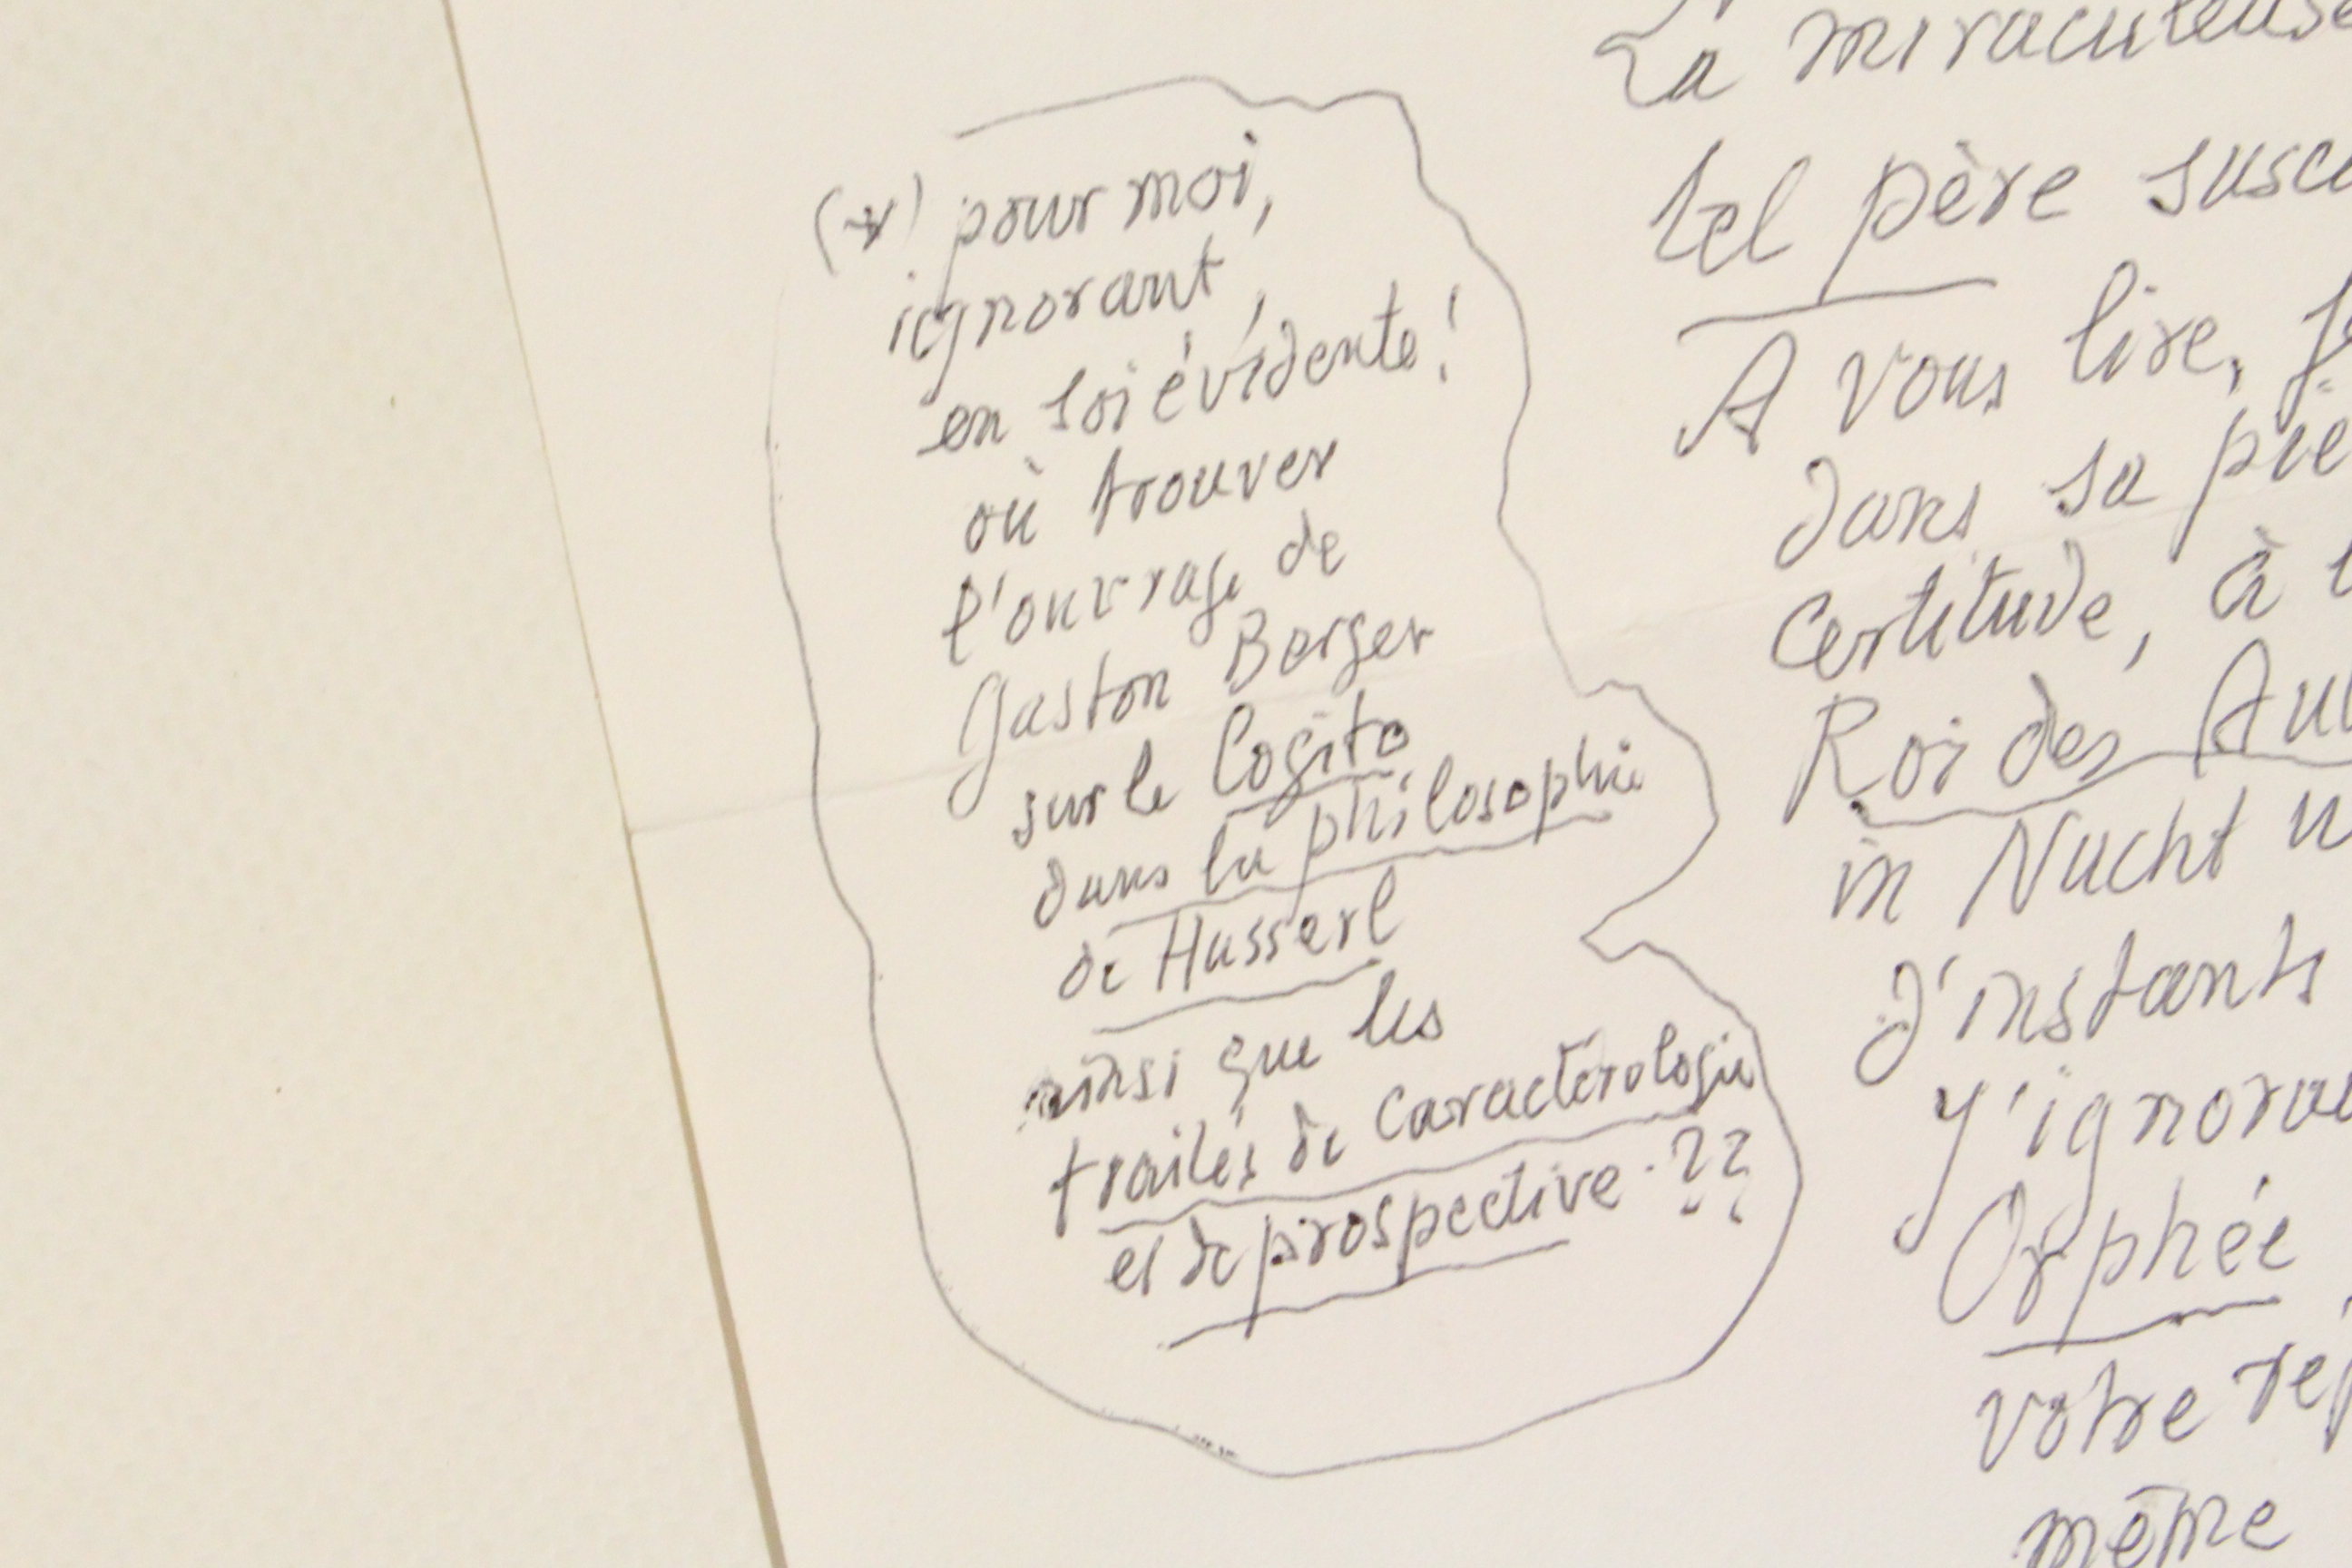 (*) pour moi,
ignorant,
en soi évidente!
où trouver
l'ouvrage de
Gaston Berger
sur le Cogito
dans la philosophie
de Husserl
ainsi que les
traités de caractérologie
et de prospective. ??
La miraculeuse
tel père susci
A vous lire, je
dans sa piè
certitude, à l
Roi des Aul
in Nacht u
d'instants
J'ignorai
Orphée
votre rép
même